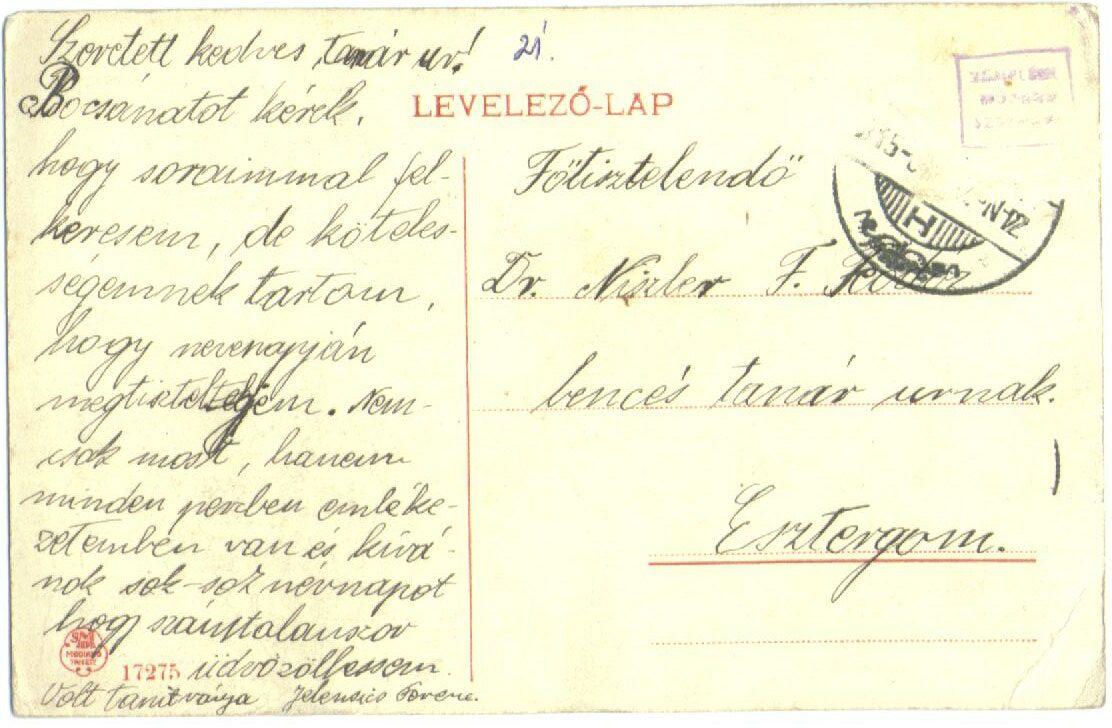 Szeretett kedves tanár ur!
21.
Bocsánatot kérek,
LEVELEZŐ-LAP
hogy soraimmal fel-
keresem, de köteles-
ségemnek tartom,
hogy nevenapján
megtiszteltejem. Nem-
csak most, hanem
minden perczben emléke-
zetemben van és kívá-
nok sok-sok névnapot
hogy számtalanszor
üdvözölhessem.
Volt tanítványa Jelensics Ferenc.
17275
Főtisztelendő
Dr. Niszler F.
bencés tanár urnak.
Esztergom.